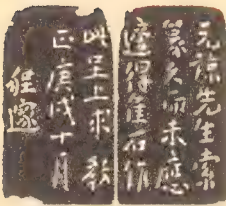 元先生索
篆久而未應
適得佳石作
此呈上求教
正庚戌十月
程邃